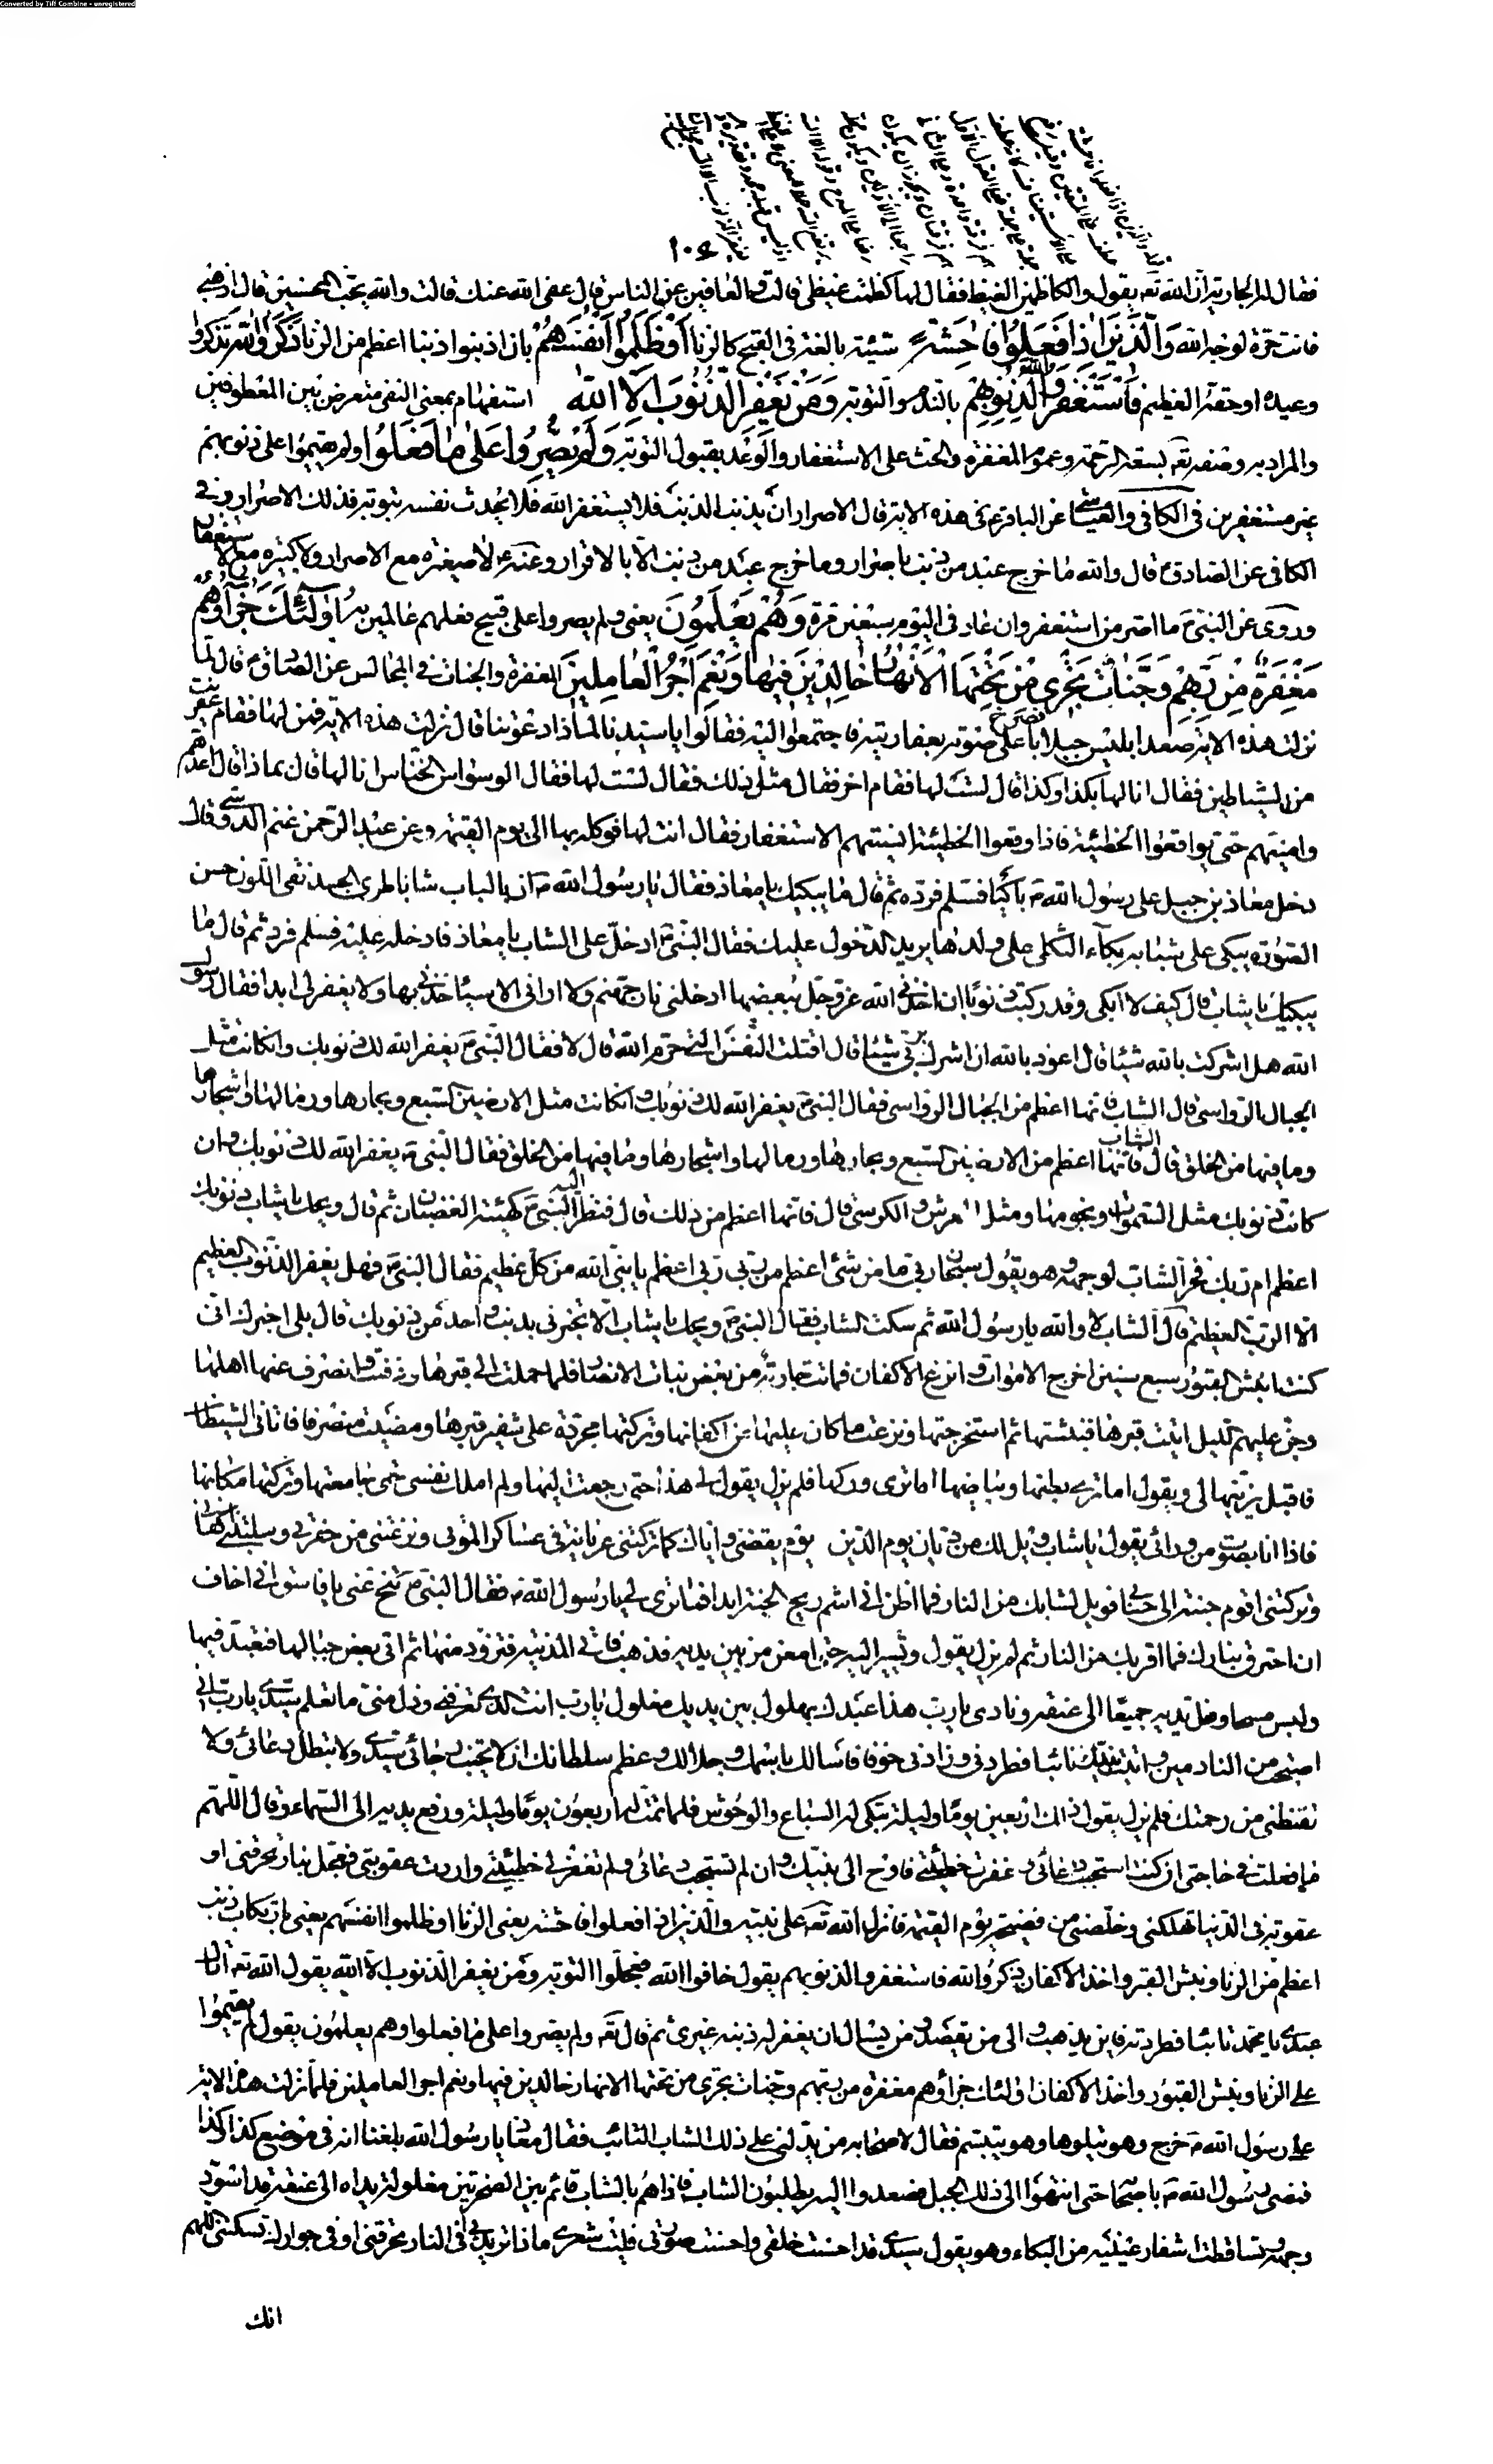 Converted by Tiff Combine - unregistered
١٠٤
فقال له الجارية ان الله تعه يقول والكاظمين الغيظ فقال لها كظمت غيظى قالت والعافين عن الناس قال عفى الله عنك قالت والله يحب المحسنين قال اذهبى
فانت حرة لوجه الله وَالَّذينَ اِذا فَعَلُوا فاحِشَةً سيئة بالغة فى القبح كالزنا اَوْ ظَلَمُوا اَنْفُسَهُمْ بان اذنبوا ذنبا اعظم من الزنا ذَكَرُوا اللهَ تذكروا
وعيده او حقه العظيم فَاسْتَغْفَرُوا لِذُنُوبِهِمْ بالندم والتوبة وَمَنْ يَغْفِرُ الذُّنُوبَ اِلاَّ اللهُ استفهام بمعنى النفى معترض بين المعطوفين
والمراد به وصفه تعه بسعة الرحمة وعموم المغفرة والحث على الاستغفار والوعد بقبول التوبة وَلَمْ يُصِرُّوا عَلى ما فَعَلُوا ولم يقيموا على ذنوبهم
غير مستغفرين فى الكافى والعياشى عن الباقر ع فى هذه الاية قال الاصرار ان يذنب الذنب فلا يستغفر الله فلا يحدث نفسه بتوبة فذلك الاصرار وفى
الكافى عن الصادق ع قال والله ما خرج عبد من ذنب باصرار وما خرج عبد من ذنب الا بالاقرار وعنه ع لا صغيرة مع الاصرار ولا كبيرة مع الاستغفار
وروى عن النبى ص ما اصر من استغفر وان عاد فى اليوم سبعين مرة وَهُمْ يَعْلَمُونَ يعنى ولم يصروا على قبيح فعلهم عالمين به اُولئِكَ جَزاؤُهُمْ
مَغْفِرَةٌ مِنْ رَبِّهِمْ وَجَنّاتٌ تَجْرى مِنْ تَحْتِهَا الْاَنْهارُ خالِدينَ فيها وَنِعْمَ اَجْرُ الْعامِلينَ المغفرة والجنات فى المجالس عن الصادق ع قال لما
نزلت هذه الاية صعد ابليس جبلا فصرخ باعلى صوته بعفاريته فاجتمعوا اليه فقالوا يا سيدنا لماذا دعوتنا قال نزلت هذه الاية فمن لها فقام عفريت
من الشياطين فقال انا لها بكذا وكذا قال لست لها فقام اخر فقال مثل ذلك فقال لست لها فقال الوسواس الخناس انا لها قال بماذا قال اعدهم
وامنيهم حتى يواقعوا الخطيئة فاذا وقعوا الخطيئة انسيتهم الاستغفار فقال انت لها فوكله بها الى يوم القيمة وعن عبد الرحمن غنم الدوسى قال
دخل معاذ بن جبل على رسول الله ص باكيا فسلم فرده ثم قال ما يبكيك يا معاذ فقال يا رسول الله ص ان بالباب شابا طرى الجسد نقى اللون حسن
الصورة يبكى على شبابه بكاء الثكلى على ولدها يريد الدخول عليك فقال النبى ص ادخل على الشاب يا معاذ فادخله عليه فسلم فرد ثم قال ما
يبكيك يا شاب قال كيف لا ابكى وقد ركبت ذنوبا ان اخذنى الله عز وجل ببعضها ادخلنى نار جهنم ولا ارانى الا سيأخذنى بها ولا يغفر لى ابدا فقال رسول
الله هل اشركت بالله شيئا قال اعوذ بالله ان اشرك بربى شيئا قال اقتلت النفس التى حرم الله قال لا فقال النبى ص يغفر الله لك ذنوبك وان كانت مثل
الجبال الرواسى قال الشاب فانها اعظم من الجبال الرواسى فقال النبى ص يغفر الله لك ذنوبك وان كانت مثل الارضين السبع وبحارها ورمالها واشجارها
وما فيها من الخلق قال الشاب فانها اعظم من الارضين السبع وبحارها ورمالها واشجارها وما فيها من الخلق فقال النبى ص يغفر الله لك ذنوبك وان
كانت ذنوبك مثل السموات ونجومها ومثل العرش والكرسى قال فانها اعظم من ذلك قال فنظر النبى ص اليه كهيئة الغضبان ثم قال ويحك يا شاب ذنوبك
اعظم ام ربك فخر الشاب لوجهه وهو يقول سبحان ربى ما من شئ اعظم من ربى ربى اعظم يا نبى الله من كل عظيم فقال النبى ص فهل يغفر الذنوب العظيم
الا الرب العظيم قال الشاب لا والله يا رسول الله ثم سكت الشاب فقال النبى ص ويحك يا شاب الا تخبرنى بذنب واحد من ذنوبك قال بلى اخبرك انى
كنت انبش القبور سبع سنين اخرج الاموات وانزع الاكفان فماتت جارية من بعض بنات الانصار فلما حملت الى قبرها ودفنت وانصرف عنها اهلها
وجن عليهم الليل اتيت قبرها فنبشتها ثم استخرجتها ونزعت ما كان عليها من اكفانها وتركتها مجردة على شفير قبرها ومضيت منصرفا فاتانى الشيطان
فاقبل يزينها لى ويقول اما ترى بطنها وبياضها اما ترى وركيها فلم يزل يقول لى هذا حتى رجعت اليها ولم املك نفسى حتى جامعتها وتركتها مكانها
فاذا انا بصوت من ورائى يقول يا شاب ويل لك من ديان يوم الدين يوم يقفنى واياك كما تركتنى عريانة فى عساكر الموتى ونزعتنى من حفرتى وسلبتنى اكفانى
وتركتنى اقوم جنبة الى حسابى فويل لشبابك من النار فما اظن انى اشم ريح الجنة ابدا فما ترى لى يا رسول الله ص فقال النبى ص تنح عنى يا فاسق انى اخاف
ان احترق بنارك فما اقربك من النار ثم لم يزل يقول ويشير اليه حتى امعن من بين يديه فذهب فاتى المدينة فتزود منها ثم اتى بعض جبالها فتعبد فيها
ولبس مسحا وغل يديه جميعا الى عنقه ونادى يا رب هذا عبدك بهلول بين يديك مغلول يا رب انت الذى تعرفنى وزل منى ما تعلم سيدى يا رب انى
اصبحت من النادمين واتيت نبيك تائبا فطردنى وزادنى خوفا فاسالك باسمك وجلالك وعظم سلطانك ان لا تخيب رجائى سيدى ولا تبطل دعائى ولا
تقنطنى من رحمتك فلم يزل يقول ذلك اربعين يوما وليلة تبكى له السباع والوحوش فلما تمت له اربعون يوما وليلة رفع يديه الى السماء وقال اللهم
ما فعلت فى حاجتى ان كنت استجبت دعائى وغفرت خطيئتى فاوح الى نبيك وان لم تستجب دعائى ولم تغفر لى خطيئتى واردت عقوبتى فعجل بنار تحرقنى او
عقوبة فى الدنيا تهلكنى وخلصنى من فضيحة يوم القيمة فانزل الله تعه على نبيه والذين اذا فعلوا فاحشة يعنى الزنا او ظلموا انفسهم يعنى بارتكاب ذنب
اعظم من الزنا ونبش القبر واخذ الاكفان ذكروا الله فاستغفروا لذنوبهم يقول خافوا الله فعجلوا التوبة ومن يغفر الذنوب الا الله يقول الله تعه اتاك
عبدى يا محمد تائبا فطردته فاين يذهب والى من يقصد ومن يسال ان يغفر له ذنبه غيرى ثم قال تعه ولم يصروا على ما فعلوا وهم يعلمون يقول لم يقيموا
على الزنا ونبش القبور واخذ الاكفان اولئك جزاؤهم مغفرة من ربهم وجنات تجرى من تحتها الانهار خالدين فيها ونعم اجر العاملين فلما نزلت هذه الاية
على رسول الله ص خرج وهو يتلوها وهو يتبسم فقال لاصحابه من يدلنى على ذلك الشاب التائب فقال معاذ يا رسول الله بلغنا انه فى موضع كذا وكذا
فمضى رسول الله ص باصحابه حتى انتهوا الى ذلك الجبل فصعدوا اليه يطلبون الشاب فاذا هم بالشاب قائم بين الصخرتين مغلولة يداه الى عنقه قد اسود
وجهه وتساقطت اشفار عينيه من البكاء وهو يقول سيدى قد احسنت خلقى واحسنت صورتى فليت شعرى ماذا تريد بى افى النار تحرقنى او فى جوارك تسكننى اللهم
انك